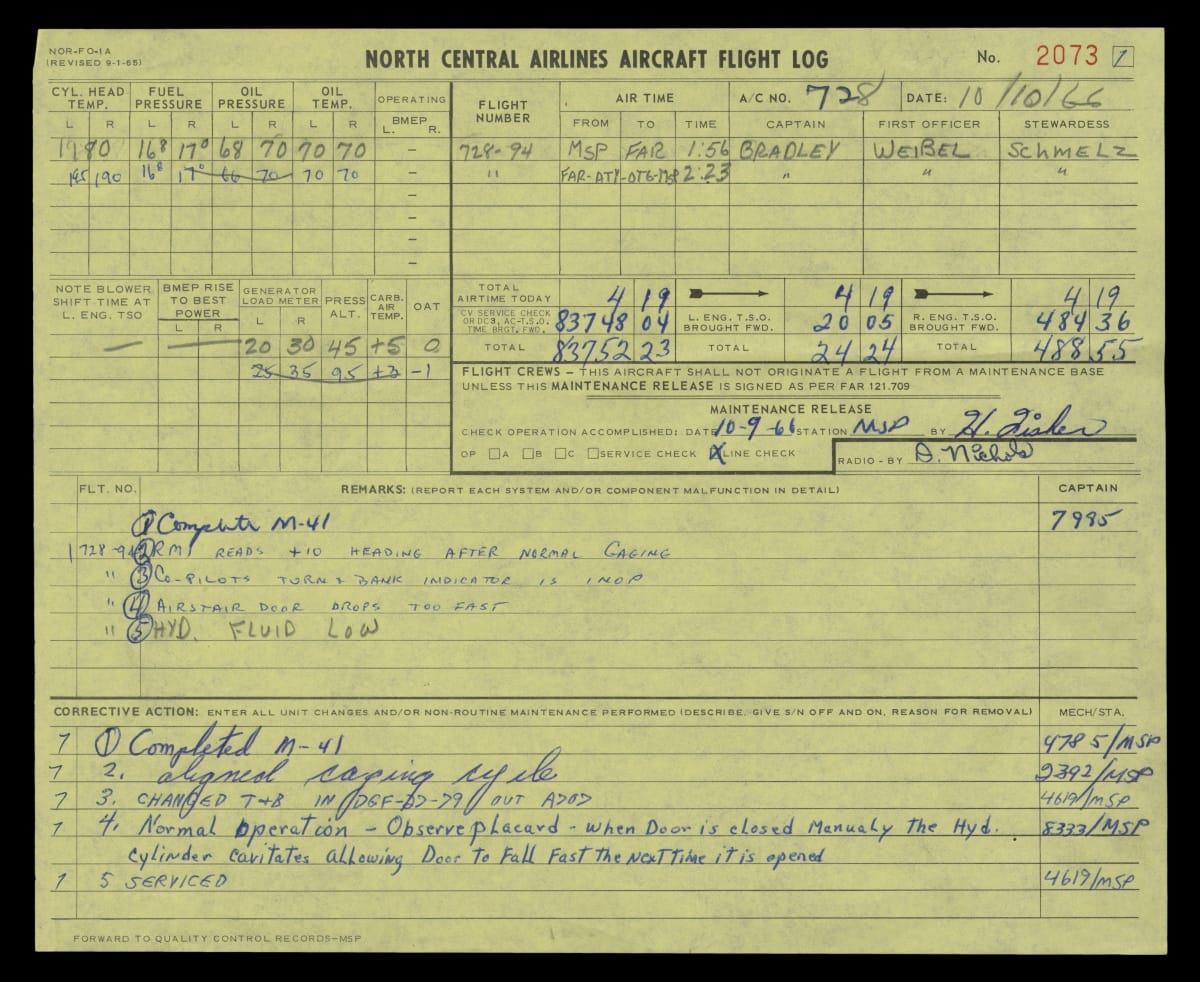 NOR-FO-1A
(REVISED 9-1-65)
NORTH CENTRAL AIRLINES AIRCRAFT FLIGHT LOG
No. 2073 7
CYL. HEAD TEMP. FUEL PRESSURE OIL PRESSURE OIL TEMP. OPERATING
L R L R L R L R BMEP L. R.
FLIGHT NUMBER AIR TIME A/C NO. 728 DATE: 10/10/66
FROM TO TIME CAPTAIN FIRST OFFICER STEWARDESS
168 170 68 70 70 70 – 728-94 MSP FAR 1:56 BRADLEY WEIBEL SCHMELZ
195 190 168 170 66 70 70 70 – " FAR-ATY-OTG-MSP 2:23 " " "
–
–
–
–
NOTE BLOWER SHIFT-TIME AT L. ENG. TSO BMEP RISE TO BEST POWER L R GENERATOR LOAD METER L R PRESS ALT. CARB. AIR TEMP. OAT
– – 20 30 45 +5 0
25 35 95 +3 -1
TOTAL AIRTIME TODAY 4 19 4 19 4 19
CV SERVICE CHECK OR DC3, AC-T.S.O. TIME BRGT. FWD. 83748 04 L. ENG. T.S.O. BROUGHT FWD. 20 05 R. ENG. T.S.O. BROUGHT FWD. 484 36
TOTAL 83752 23 TOTAL 24 24 TOTAL 488 55
FLIGHT CREWS – THIS AIRCRAFT SHALL NOT ORIGINATE A FLIGHT FROM A MAINTENANCE BASE
UNLESS THIS MAINTENANCE RELEASE IS SIGNED AS PER FAR 121.709
MAINTENANCE RELEASE
CHECK OPERATION ACCOMPLISHED: DATE 10-9-66 STATION MSP BY H. Fisher
OP A B C SERVICE CHECK X LINE CHECK RADIO - BY D. Nichols
FLT. NO. REMARKS: (REPORT EACH SYSTEM AND/OR COMPONENT MALFUNCTION IN DETAIL) CAPTAIN
1 Complete M-41 7985
1 728-94 2 RMI READS +10 HEADING AFTER NORMAL CAGING
" 3 CO-PILOTS TURN & BANK INDICATOR IS INOP
" 4 AIRSTAIR DOOR DROPS TOO FAST
" 5 HYD. FLUID LOW
CORRECTIVE ACTION: ENTER ALL UNIT CHANGES AND/OR NON-ROUTINE MAINTENANCE PERFORMED (DESCRIBE, GIVE S/N OFF AND ON, REASON FOR REMOVAL) MECH/STA.
7 1 Completed M-41 4785/MSP
7 2. aligned caging cycle 2392/MSP
7 3. CHANGED T+B IN OUT 4619/MSP
7 4. Normal operation - Observe placard - when Door is closed Manualy The Hyd. 8333/MSP
cylinder cavitates allowing Door to Fall Fast The next time it is opened
7 5 SERVICED 4619/MSP
FORWARD TO QUALITY CONTROL RECORDS-MSP